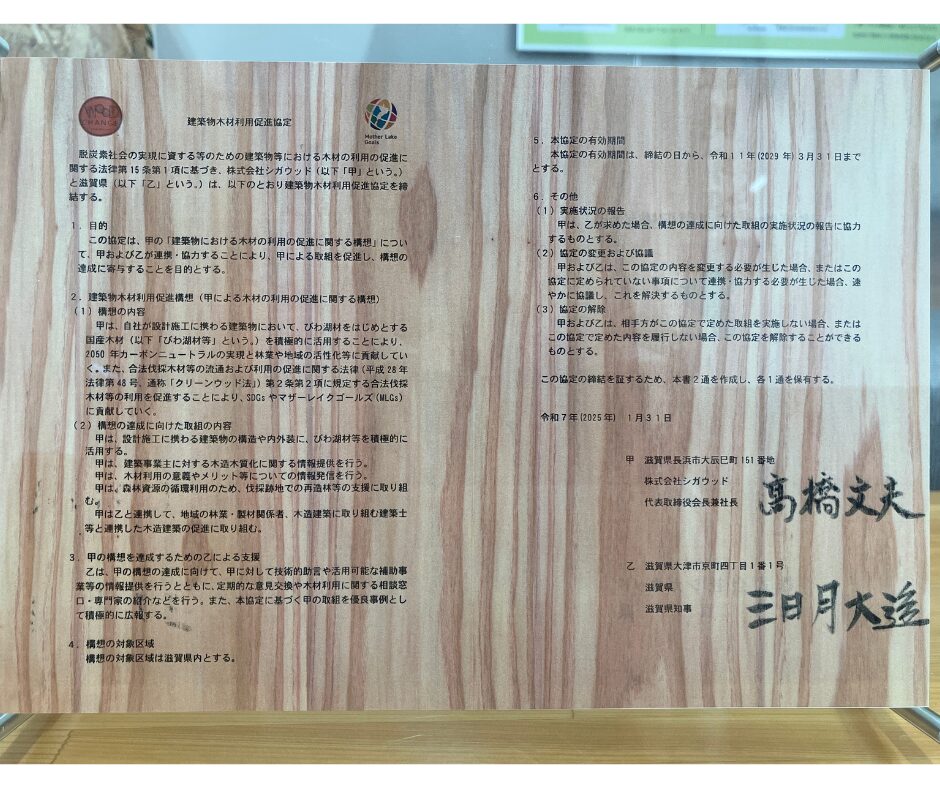 WOOD
CHANGE
Mother Lake
Goals
建築物木材利用促進協定
脱炭素社会の実現に資する等のための建築物等における木材の利用の促進に
関する法律第15条第1項に基づき、株式会社シガウッド（以下「甲」という。）
と滋賀県（以下「乙」という。）は、以下のとおり建築物木材利用促進協定を締
結する。
1．目的
この協定は、甲の「建築物における木材の利用の促進に関する構想」につい
て、甲および乙が連携・協力することにより、甲による取組を促進し、構想の
達成に寄与することを目的とする。
2．建築物木材利用促進構想（甲による木材の利用の促進に関する構想）
（1）構想の内容
甲は、自社が設計施工に携わる建築物において、びわ湖材をはじめとする
国産木材（以下「びわ湖材等」という。）を積極的に活用することにより、
2050 年カーボンニュートラルの実現と林業や地域の活性化等に貢献してい
く。また、合法伐採木材等の流通および利用の促進に関する法律（平成28年
法律第48号、通称「クリーンウッド法」）第2条第2項に規定する合法伐採
木材等の利用を促進することにより、SDGsやマザーレイクゴールズ(MLGs)
に貢献していく。
（2）構想の達成に向けた取組の内容
甲は、設計施工に携わる建築物の構造や内外装に、びわ湖材等を積極的に
活用する。
甲は、建築事業主に対する木造木質化に関する情報提供を行う。
甲は、木材利用の意義やメリット等についての情報発信を行う。
甲は、森林資源の循環利用のため、伐採跡地での再造林等の支援に取り組
む。
甲は乙と連携して、地域の林業・製材関係者、木造建築に取り組む建築士
等と連携した木造建築の促進に取り組む。
3．甲の構想を達成するための乙による支援
乙は、甲の構想の達成に向けて、甲に対して技術的助言や活用可能な補助事
業等の情報提供を行うとともに、定期的な意見交換や木材利用に関する相談窓
口・専門家の紹介などを行う。また、本協定に基づく甲の取組を優良事例とし
て積極的に広報する。
4．構想の対象区域
構想の対象区域は滋賀県内とする。
5．本協定の有効期間
本協定の有効期間は、締結の日から、令和11年(2029年)3月31日まで
とする。
6．その他
（1）実施状況の報告
甲は、乙が求めた場合、構想の達成に向けた取組の実施状況の報告に協力
するものとする。
（2）協定の変更および協議
甲および乙は、この協定の内容を変更する必要が生じた場合、またはこの
協定に定められていない事項について連携・協力する必要が生じた場合、速
やかに協議し、これを解決するものとする。
（3）協定の解除
甲および乙は、相手方がこの協定で定めた取組を実施しない場合、または
この協定で定めた内容を履行しない場合、この協定を解除することができる
ものとする。
この協定の締結を証するため、本書2通を作成し、各1通を保有する。
令和7年(2025年)　1月31日
甲　滋賀県長浜市大辰巳町151番地
株式会社シガウッド
代表取締役会長兼社長　高橋文夫
乙　滋賀県大津市京町四丁目1番1号
滋賀県
滋賀県知事　三日月大造